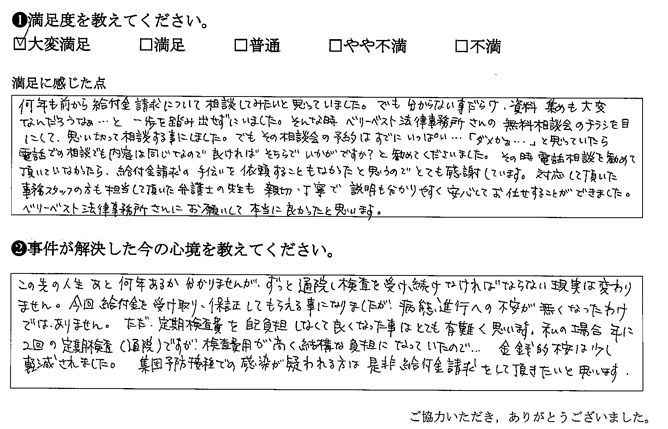 ❶満足度を教えてください。
☑大変満足 □満足 □普通 □やや不満 □不満
満足に感じた点
何年も前から給付金請求について相談してみたいと思っていました。でも分からない事だらけ、資料集めも大変
なんだろうなぁ…と一歩を踏み出せずにいました。そんな時ベリーベスト法律事務所さんの無料相談会のチラシを目
にして、思い切って相談する事にしました。でもその相談会の予約はすでにいっぱい…「ダメかぁ…」と思っていたら
電話での相談でも内容は同じなので良ければそちらでいかがですか？と勧めてくださいました。その時電話相談を勧めて
頂いていなかったら、給付金請求の手伝いを依頼することもなかったと思うのでとても感謝しています。対応して頂いた
事務スタッフの方も担当して頂いた弁護士の先生も親切・丁寧で説明も分かりやすく安心してお任せすることができました。
ベリーベスト法律事務所さんにお願いして本当に良かったと思います。
❷事件が解決した今の心境を教えてください。
この先の人生あと何年あるか分かりませんが、ずっと通院し検査を受け続けなければならない現実は変わり
ません。今回給付金を受け取り、保証してもらえる事になりましたが、病態進行への不安が無くなったわけ
ではありません。ただ、定期検査費を自己負担しなくて良くなった事はとても有難く思います。私の場合年に
2回の定期検査（通院）ですが、検査費用が高く結構な負担になっていたので… 金銭的不安は少し
軽減されました。 集団予防接種での感染が疑われる方は是非給付金請求をして頂きたいと思います。
ご協力いただき，ありがとうございました。